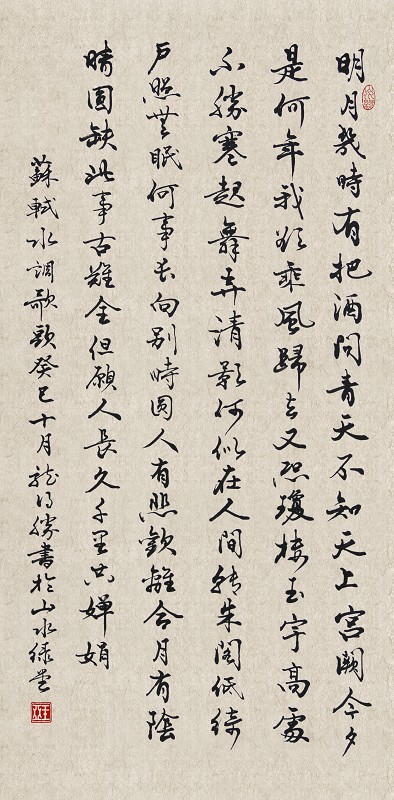 明月幾時有把酒問青天不知天上宮闕今夕
是何年我欲乘風歸去又恐瓊樓玉宇高處
不勝寒起舞弄清影何似在人間轉朱閣低綺
戶照無眠何事長向別時圓人有悲歡離合月有陰
晴圓缺此事古難全但願人長久千里共嬋娟
蘇軾水調歌頭癸巳十月龍勝書於山水緑堂